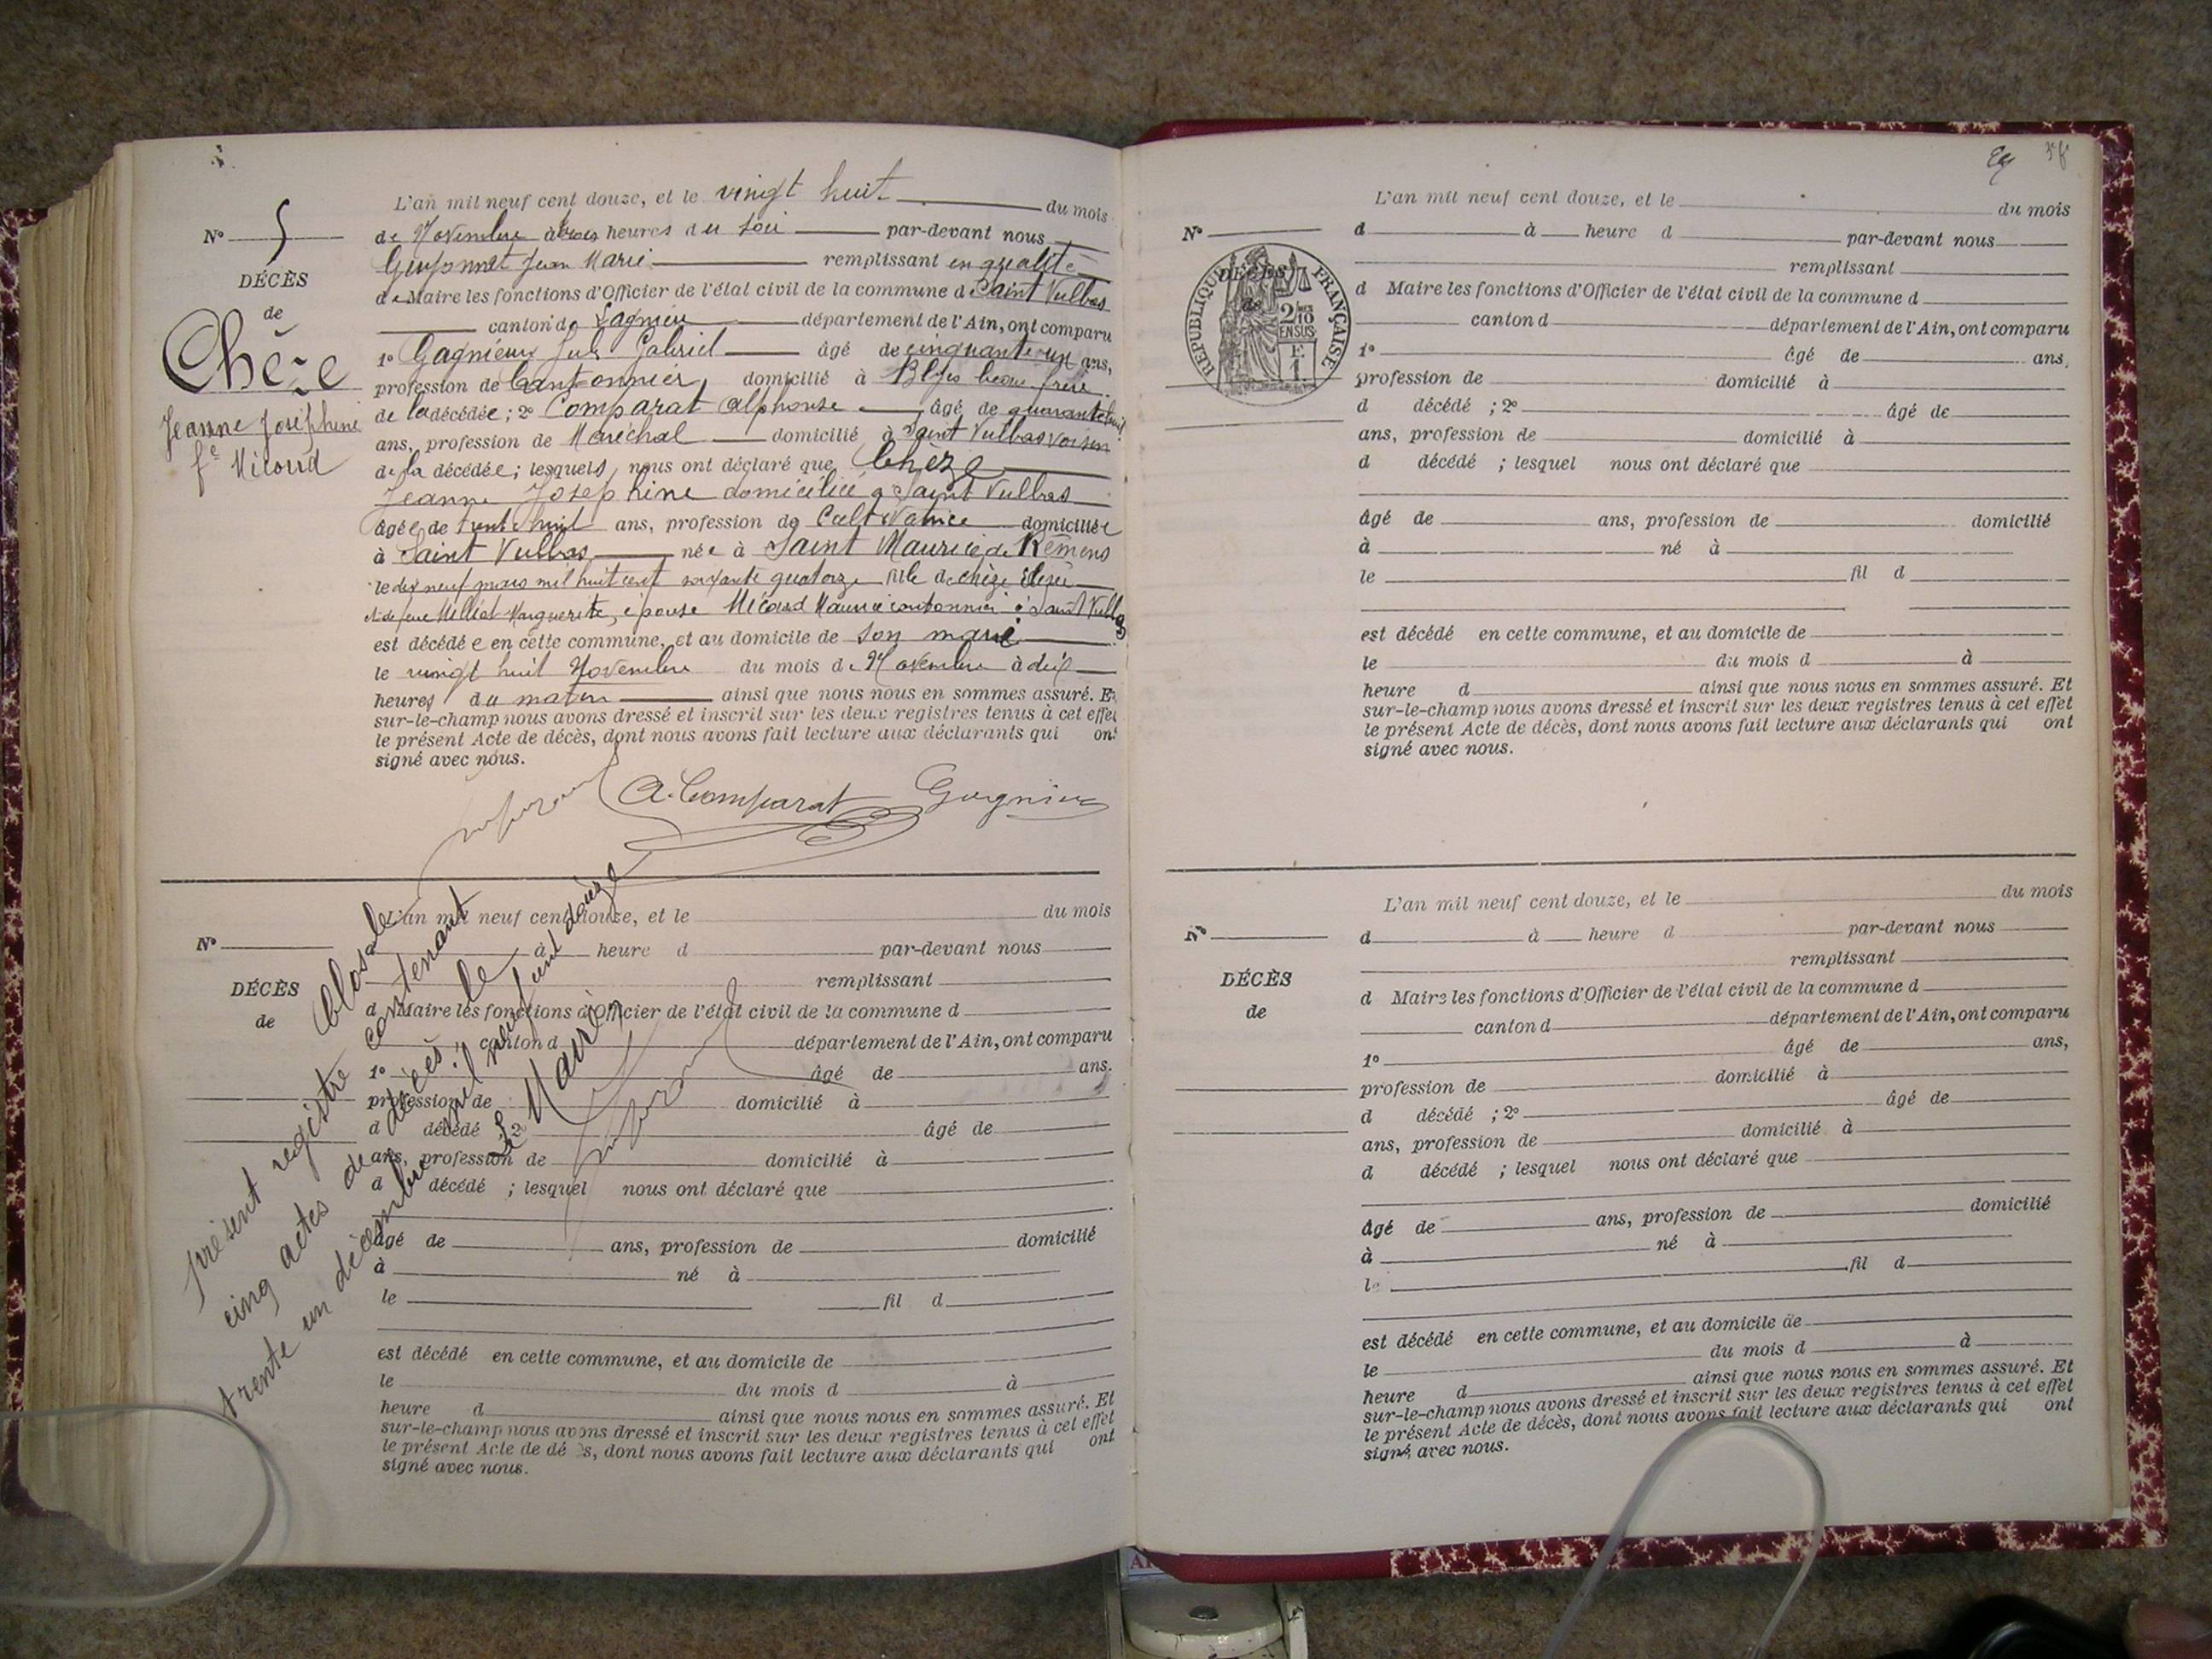 L'an mil neuf cent douze, et le vingt huit du mois
de Novembre à trois heures du soir par-devant nous
Guyonnet Jean Marie remplissant en qualité
de Maire les fonctions d'Officier de l'état civil de la commune de Saint Vulbas
canton de Lagnieu département de l'Ain, ont comparu
1° Gagnieux Jules Gabriel âgé de cinquante un ans,
profession de Cantonnier, domicilié à Blyes beau frère
de la décédée ; 2° Comparat Alphonse âgé de quarante huit
ans, profession de Maréchal domicilié à Saint Vulbas voisin
de la décédée ; lesquels nous ont déclaré que Chèze
Jeanne Josephine domiciliée à Saint Vulbas
âgée de trente huit ans, profession de Cultivatrice domiciliée
à Saint Vulbas née à Saint Maurice de Rémens
le dix neuf mars mil huit cent soixante quatorze fille de Chèze
et de feue Marguerite, épouse Micoud Maurice cantonnier à Saint Vulbas
est décédée en cette commune, et au domicile de son mari
le vingt huit Novembre du mois de Novembre à dix
heures du matin ainsi que nous nous en sommes assuré. Et
sur-le-champ nous avons dressé et inscrit sur les deux registres tenus à cet effet
le présent Acte de décès, dont nous avons fait lecture aux déclarants qui ont
signé avec nous.
A. Comparat Gagnieux
N° 5
DÉCÈS
de
Chèze
Jeanne Joséphine
fe Micoud
L'an mil neuf cent douze, et le du mois
N°
d à heure d par-devant nous
remplissant
DÉCÈS
de
d Maire les fonctions d'Officier de l'état civil de la commune d
canton d département de l'Ain, ont comparu
1° âgé de ans.
profession de domicilié à
d décédé ; 2° âgé de
ans, profession de domicilié à
d décédé ; lesquel nous ont déclaré que
âgé de ans, profession de domicilié
à né à
le fil d
est décédé en cette commune, et au domicile de
le du mois d à
heure d ainsi que nous nous en sommes assuré. Et
sur-le-champ nous avons dressé et inscrit sur les deux registres tenus à cet effet
le présent Acte de décès, dont nous avons fait lecture aux déclarants qui ont
signé avec nous.
Clos le
présent registre contenant
cinq actes de décès, le
trente un décembre mil neuf cent douze
Le Maire
L'an mil neuf cent douze, et le du mois
N°
d à heure d par-devant nous
remplissant
DÉCÈS
de
RÉPUBLIQUE FRANÇAISE
2/10
EN SUS
E
1
d Maire les fonctions d'Officier de l'état civil de la commune d
canton d département de l'Ain, ont comparu
1° âgé de ans,
profession de domicilié à
d décédé ; 2° âgé de
ans, profession de domicilié à
d décédé ; lesquel nous ont déclaré que
âgé de ans, profession de domicilié
à né à
le fil d
est décédé en cette commune, et au domicile de
le du mois d à
heure d ainsi que nous nous en sommes assuré. Et
sur-le-champ nous avons dressé et inscrit sur les deux registres tenus à cet effet
le présent Acte de décès, dont nous avons fait lecture aux déclarants qui ont
signé avec nous.
L'an mil neuf cent douze, et le du mois
N°
d à heure d par-devant nous
remplissant
DÉCÈS
de
d Maire les fonctions d'Officier de l'état civil de la commune d
canton d département de l'Ain, ont comparu
1° âgé de ans,
profession de domicilié à
d décédé ; 2° âgé de
ans, profession de domicilié à
d décédé ; lesquel nous ont déclaré que
âgé de ans, profession de domicilié
à né à
le fil d
est décédé en cette commune, et au domicile de
le du mois d à
heure d ainsi que nous nous en sommes assuré. Et
sur-le-champ nous avons dressé et inscrit sur les deux registres tenus à cet effet
le présent Acte de décès, dont nous avons fait lecture aux déclarants qui ont
signé avec nous.